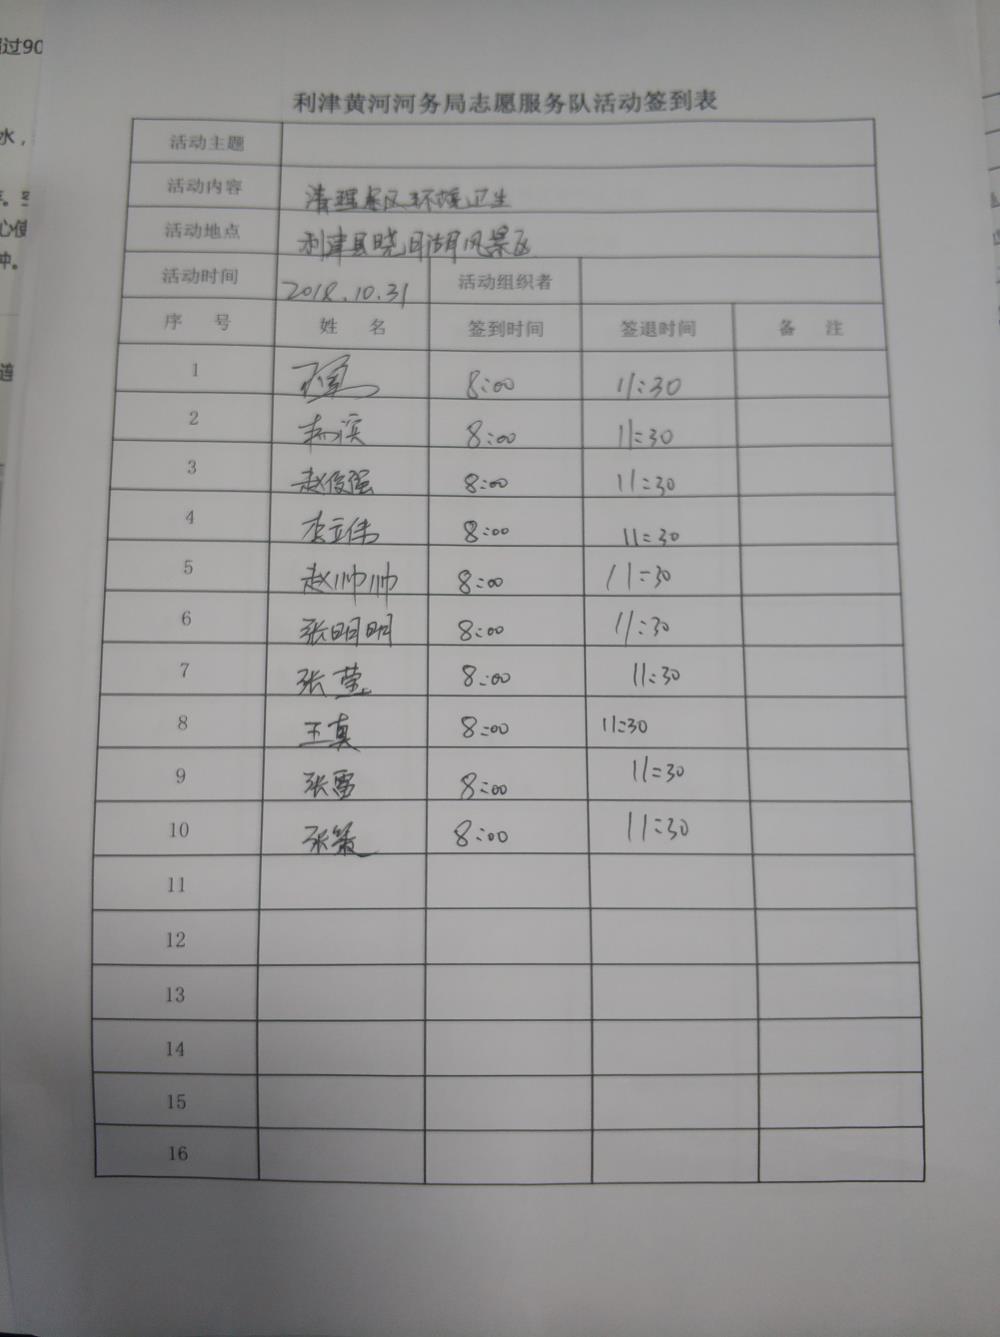 利津黄河河务局志愿服务队活动签到表
活动主题
活动内容 清理景区环境卫生
活动地点 利津县晓月湖风景区
活动时间 2018.10.31 活动组织者
序 号 姓 名 签到时间 签退时间 备 注
1 8:00 11:30
2 杨滨 8:00 11:30
3 赵俊强 8:00 11:30
4 李立伟 8:00 11:30
5 赵帅帅 8:00 11:30
6 张明明 8:00 11:30
7 张莹 8:00 11:30
8 王真 8:00 11:30
9 张雷 8:00 11:30
10 张 8:00 11:30
11
12
13
14
15
16
过90
水，
心使
冲。
连